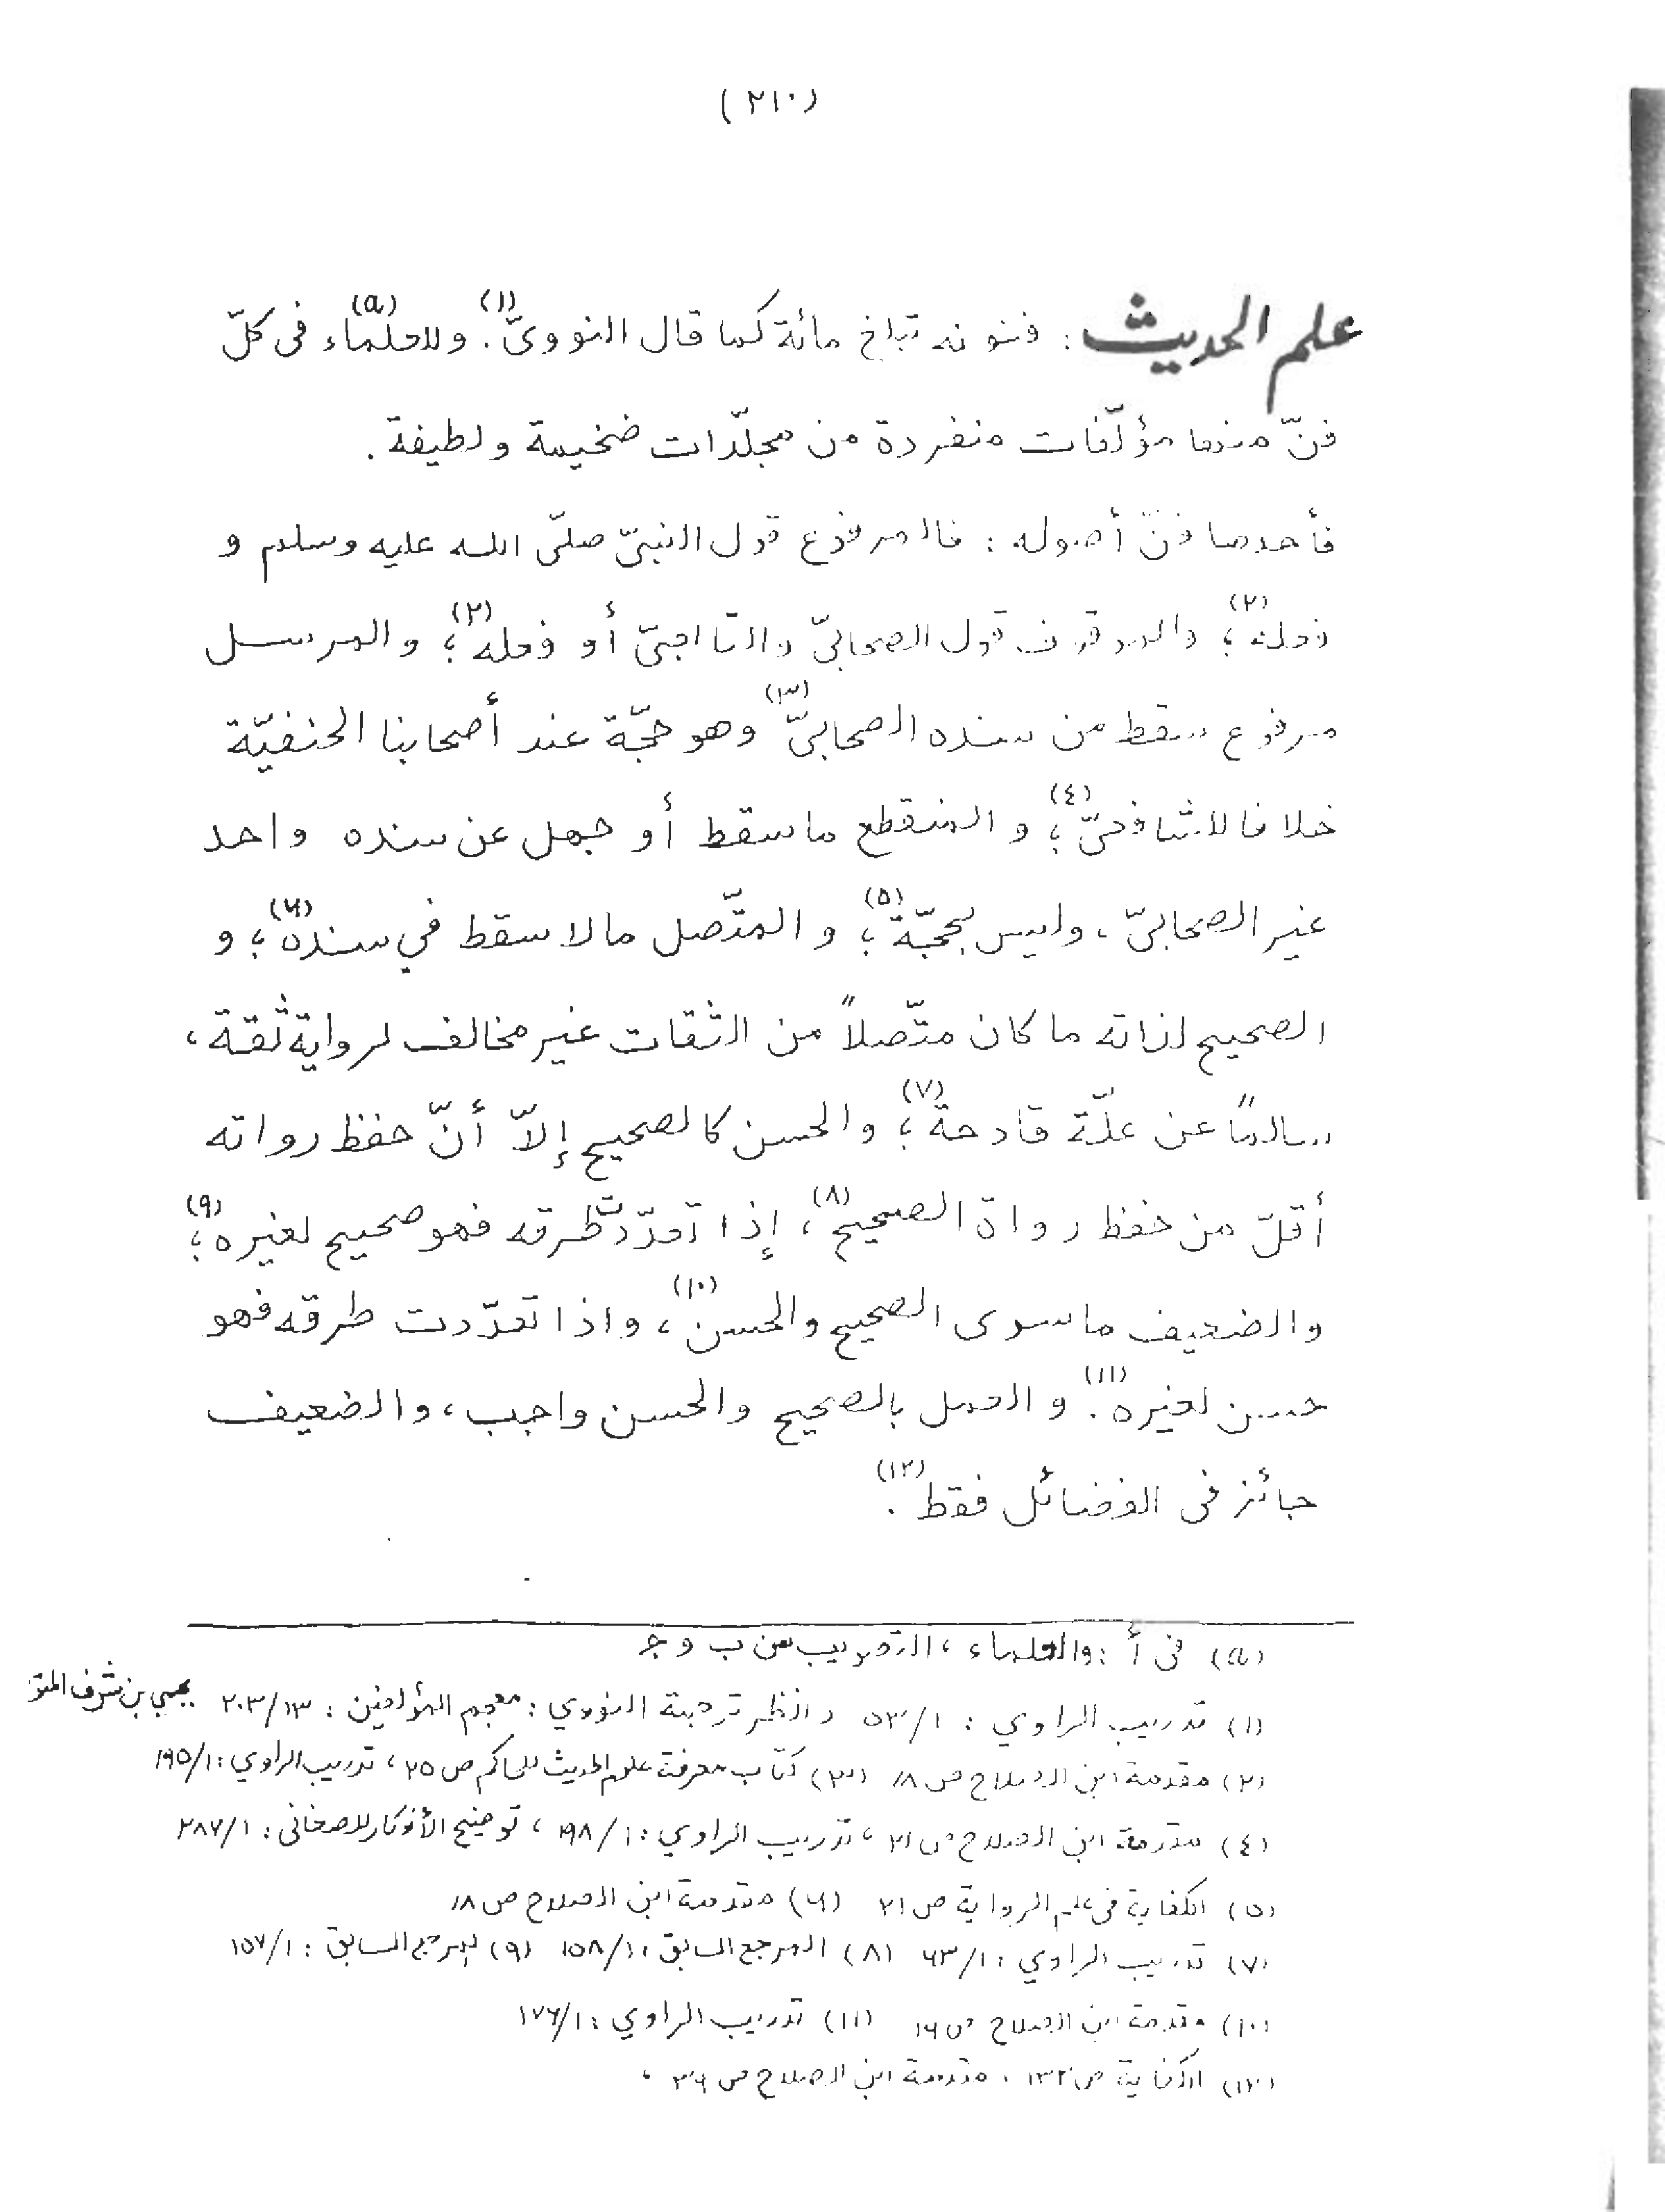 (٢١٠)
علم الحديث : فنونه تبلغ مائة كما قال النوويّ(١). وللعلماء(a) فى كلّ
فنّ منها مؤلّفات منفردة من مجلّدات ضخيمة ولطيفة .
فأحدها فنّ أصوله : فالمرفوع قول النبيّ صلّى الله عليه وسلم و
فعله(٢)؛ والموقوف قول الصحابيّ والتابعيّ أو فعله(٢)؛ والمرسل
مرفوع سقط من سنده الصحابيّ(٣) وهو حجّة عند أصحابنا الحنفيّة
خلافا للشافعيّ(٤)؛ و المنقطع ما سقط أو جهل عن سنده واحد
غير الصحابيّ، وليس بحجّة(٥)؛ و المتّصل ما لا سقط في سنده(٦)؛ و
الصحيح لذاته ما كان متّصلاً من الثقات غير مخالف لرواية ثقة،
سالمًا عن علّة قادحة(٧)؛ والحسن كالصحيح إلاّ أنّ حفظ رواته
أقلّ من حفظ رواة الصحيح(٨)، إذا تعدّدت طرقه فهو صحيح لغيره(٩)؛
والضعيف ما سوى الصحيح والحسن(١٠)، واذا تعدّدت طرقه فهو
حسن لغيره(١١). و العمل بالصحيح والحسن واجب، والضعيف
جائز فى الفضائل فقط(١٢).
(a) فى أ : والعلماء ، التصويب من ب و ج
(١) تدريب الراوي : ٥٣/١ وانظر ترجمة النووي : معجم المؤلفين : ٢٠٣/١٣ يحيي بن شرف
(٢) مقدمة ابن الصلاح ص ١٨ (٣) كتاب معرفة علوم الحديث للحاكم ص ٢٥، تدريب الراوي : ١٩٥/١
(٤) مقدمة ابن الصلاح ص ٢١ ، تدريب الراوي : ١٩٨/١ ، توضيح الأفكار للصغانى : ٢٨٧/١
(٥) الكفاية فى علم الرواية ص ٢١ (٦) مقدمة ابن الصلاح ص ١٨
(٧) تدريب الراوي : ٦٣/١ (٨) المرجع السابق : ١٥٨/١ (٩) المرجع السابق : ١٥٧/١
(١٠) مقدمة ابن الصلاح ص ١٦ (١١) تدريب الراوي : ١٧٦/١
(١٢) الكفاية ص ١٣٢ ، مقدمة ابن الصلاح ص ٣٦ ،